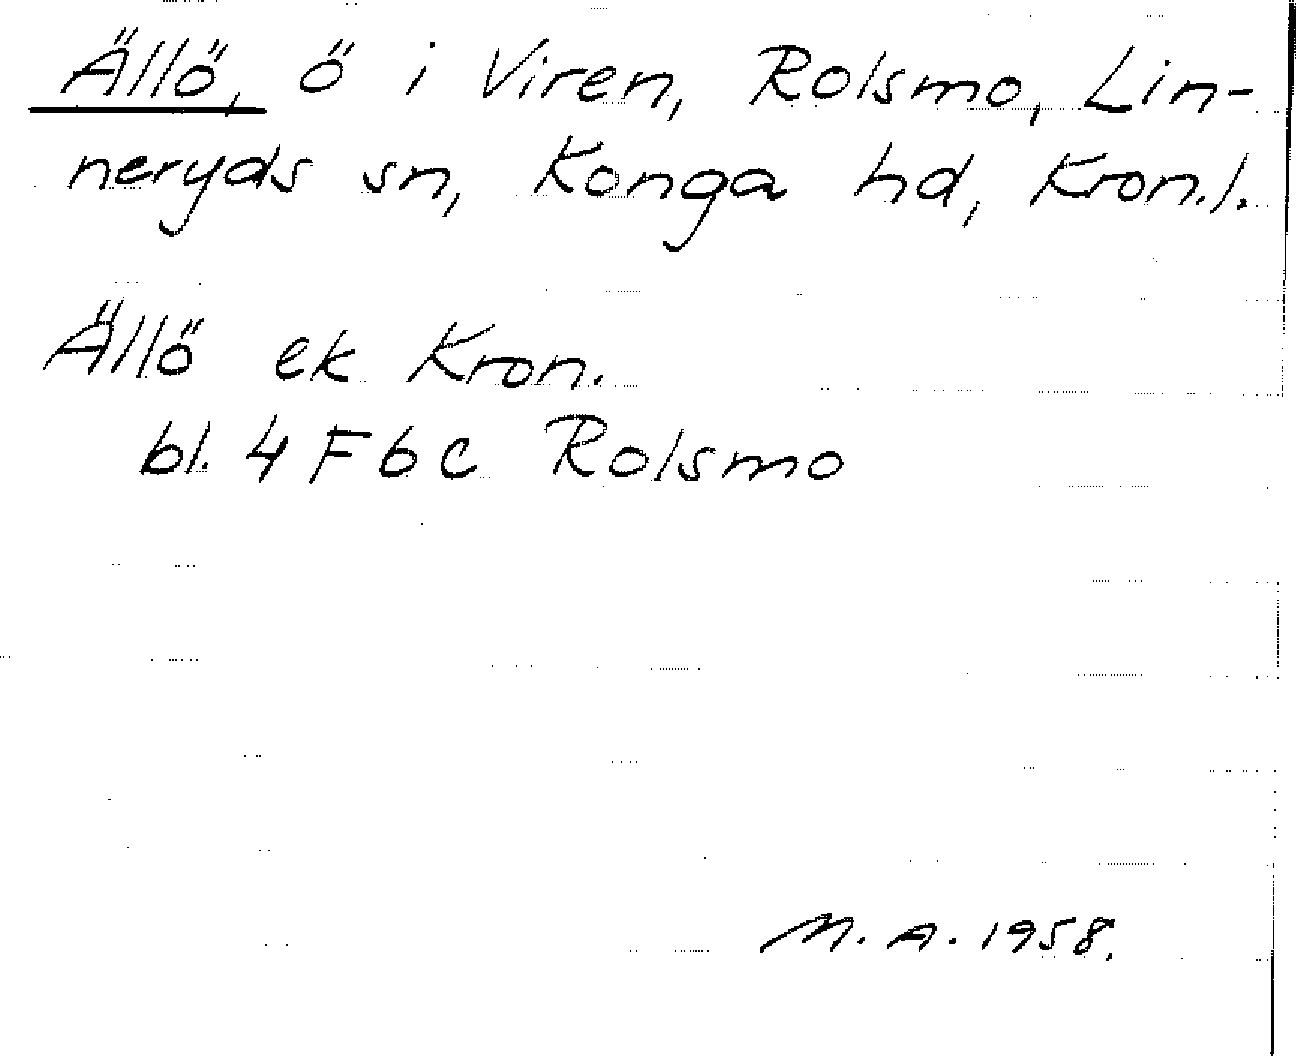 Ällö, ö i Viren, Rolsmo, Lin-
neryds sn, Konga hd, Kron.l.
Ällö ek Kron.
bl. 4 F b c Rolsmo
M. A. 1958.